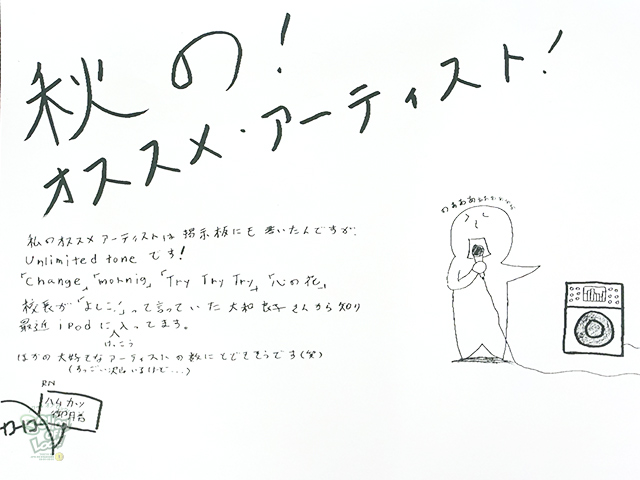 秋の!
オススメ・アーティスト!
私のオススメアーティストは掲示板にも書いたんですが、
Unlimited toneです!
「Change」「mornig」「Try Try Try」「心の花」
校長が「よしこ!」って言っていた大和良子さんから知り
最近iPodに入ってます。
けっこう
ほかの大好きなアーティストの数にとどきそうです(笑)
(すっごい沢山いるけど…)
RN
ハムカツ
御膳